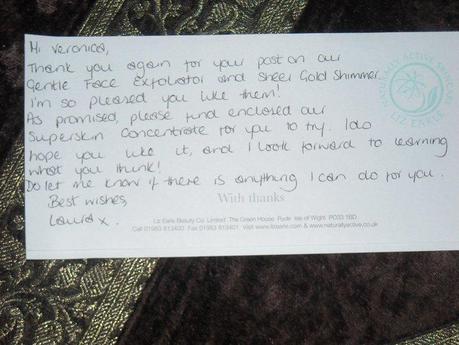 Hi Veronica,
Thank you again for your post on our
Gentle Face Exfoliator and Sheer Gold Shimmer.
I'm so pleased you like them!
As promised, please find enclosed our
Superskin Concentrate for you to try. I do
hope you like it, and I look forward to learning
what you think!
Do let me know if there is anything I can do for you.
Best wishes,
Laura x.
With thanks
Liz Earle Beauty Co. Limited The Green House Ryde Isle of Wight PO33 1BD
Call 01983 813400 Fax 01983 813401 Visit www.lizearle.com & www.naturallyactive.co.uk
NATURALLY ACTIVE SKINCARE
LIZ EARLE